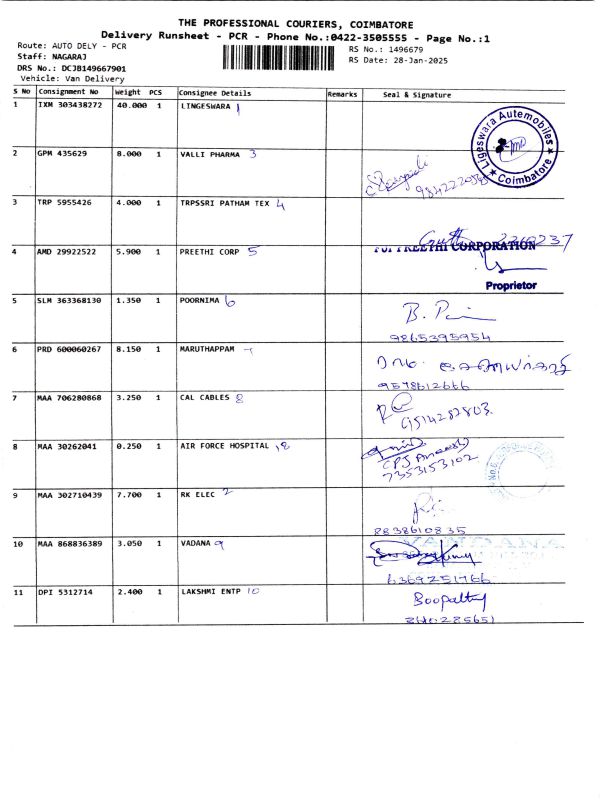 THE PROFESSIONAL COURIERS, COIMBATORE
Delivery Runsheet - PCR - Phone No.:0422-3505555 - Page No.:1
Route: AUTO DELY - PCR
RS No.: 1496679
Staff: NAGARAJ
RS Date: 28-Jan-2025
DRS No.: DCJB149667901
Vehicle: Van Delivery
S No Consignment No Weight PCS Consignee Details Remarks Seal & Signature
1 IXM 303438272 40.000 1 LINGESWARA 1
Ligeswara Automobiles
★ Coimbatore ★
2 GPM 435629 8.000 1 VALLI PHARMA 3
3 TRP 5955426 4.000 1 TRPSSRI PATHAM TEX 4
4 AMD 29922522 5.900 1 PREETHI CORP 5
For PREETHI CORPORATION
Proprietor
5 SLM 363368130 1.350 1 POORNIMA 6
9865395954
6 PRD 600060267 8.150 1 MARUTHAPPAM 7
9578612666
7 MAA 706280868 3.250 1 CAL CABLES 8
9514287803
8 MAA 30262041 0.250 1 AIR FORCE HOSPITAL
7353153102
9 MAA 302710439 7.700 1 RK ELEC 2
8838610835
10 MAA 868836389 3.050 1 VADANA 9
VANDANA
6369251766
11 DPI 5312714 2.400 1 LAKSHMI ENTP 10
Boopathy